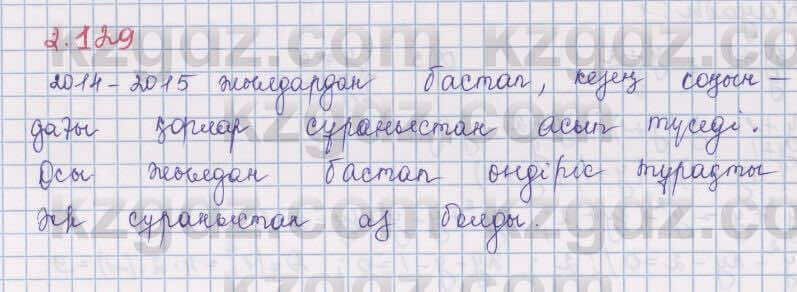 2.129
2014-2015 жылдардан бастап, кезең соңын-
дағы қорлар сұраныстан асып түседі.
Осы жылдан бастап өндіріс тұрақты
әрі сұраныстан аз болды.